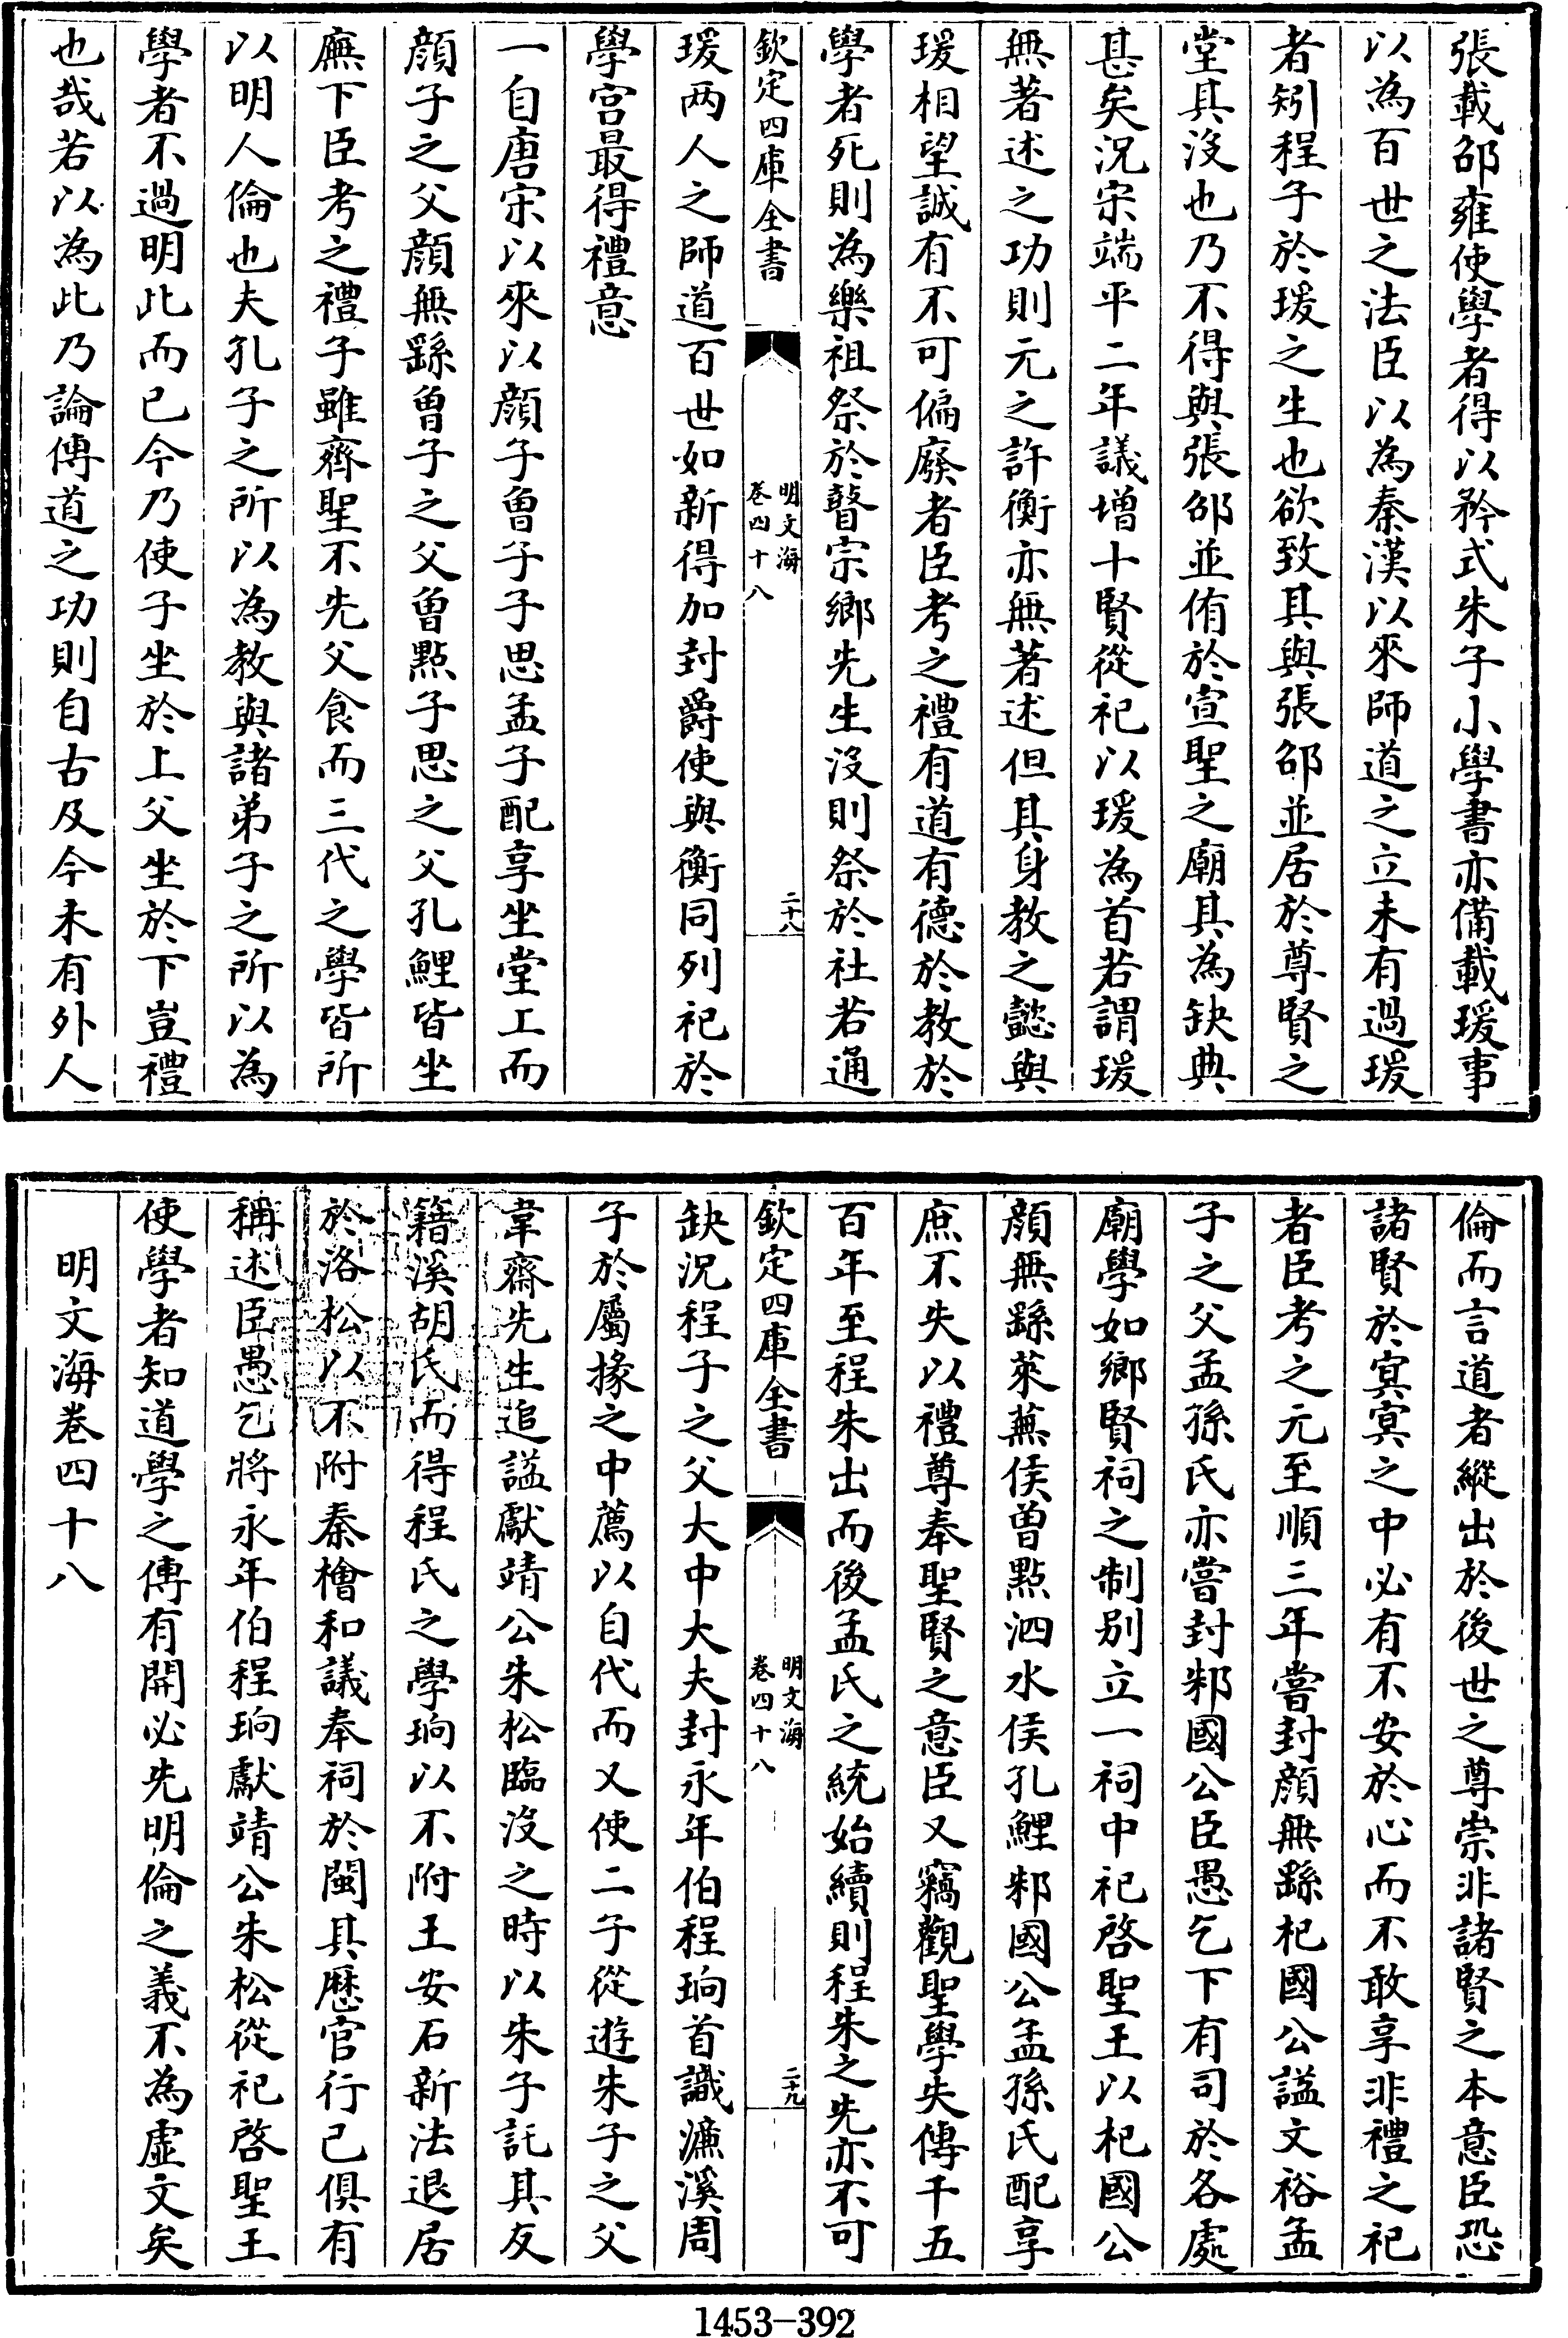 張載邵雍使學者得以矜式朱子小學書亦備載瑗事
以為百世之法臣以為秦漢以來師道之立未有過瑗
者矧程子於瑗之生也欲致其與張邵並居於尊賢之
堂其沒也乃不得與張邵並侑於宣聖之廟其為缺典
甚矣況宋端平二年議增十賢從祀以瑗為首若謂瑗
無著述之功則元之許衡亦無著述但其身教之懿與
瑗相望誠有不可偏廢者臣考之禮有道有德於教於
學者死則為樂祖祭於瞽宗鄉先生沒則祭於社若通
欽定四庫全書
明文海
卷四十八
二十八
瑗两人之師道百世如新得加封爵使與衡同列祀於
學宮最得禮意
一自唐宋以來以顔子曽子子思孟子配享坐堂上而
顔子之父顔無繇曽子之父曽點子思之父孔鯉皆坐
廡下臣考之禮子雖齊聖不先父食而三代之學皆所
以明人倫也夫孔子之所以為教與諸弟子之所以為
學者不過明此而已今乃使子坐於上父坐於下豈禮
也哉若以為此乃論傳道之功則自古及今未有外人
倫而言道者縱出於後世之尊崇非諸賢之本意臣恐
諸賢於冥冥之中必有不安於心而不敢享非禮之祀
者臣考之元至順三年嘗封顔無繇杞國公諡文裕孟
子之父孟孫氏亦嘗封邾國公臣愚乞下有司於各處
廟學如鄉賢祠之制别立一祠中祀啓聖王以杞國公
顔無繇萊蕪侯曽點泗水侯孔鯉邾國公孟孫氏配享
庶不失以禮尊奉聖賢之意臣又竊觀聖學失傳千五
百年至程朱出而後孟氏之統始續則程朱之先亦不可
欽定四庫全書
明文海
卷四十八
二十九
缺況程子之父大中大夫封永年伯程珦首識濂溪周
子於屬掾之中薦以自代而又使二子從遊朱子之父
韋齋先生追諡獻靖公朱松臨沒之時以朱子託其友
籍溪胡氏而得程氏之學珦以不附王安石新法退居
於洛松以不附秦檜和議奉祠於閩其歴官行已俱有
稱述臣愚乞將永年伯程珦獻靖公朱松從祀啓聖王
使學者知道學之傳有開必先明倫之義不為虚文矣
明文海卷四十八
1453-392